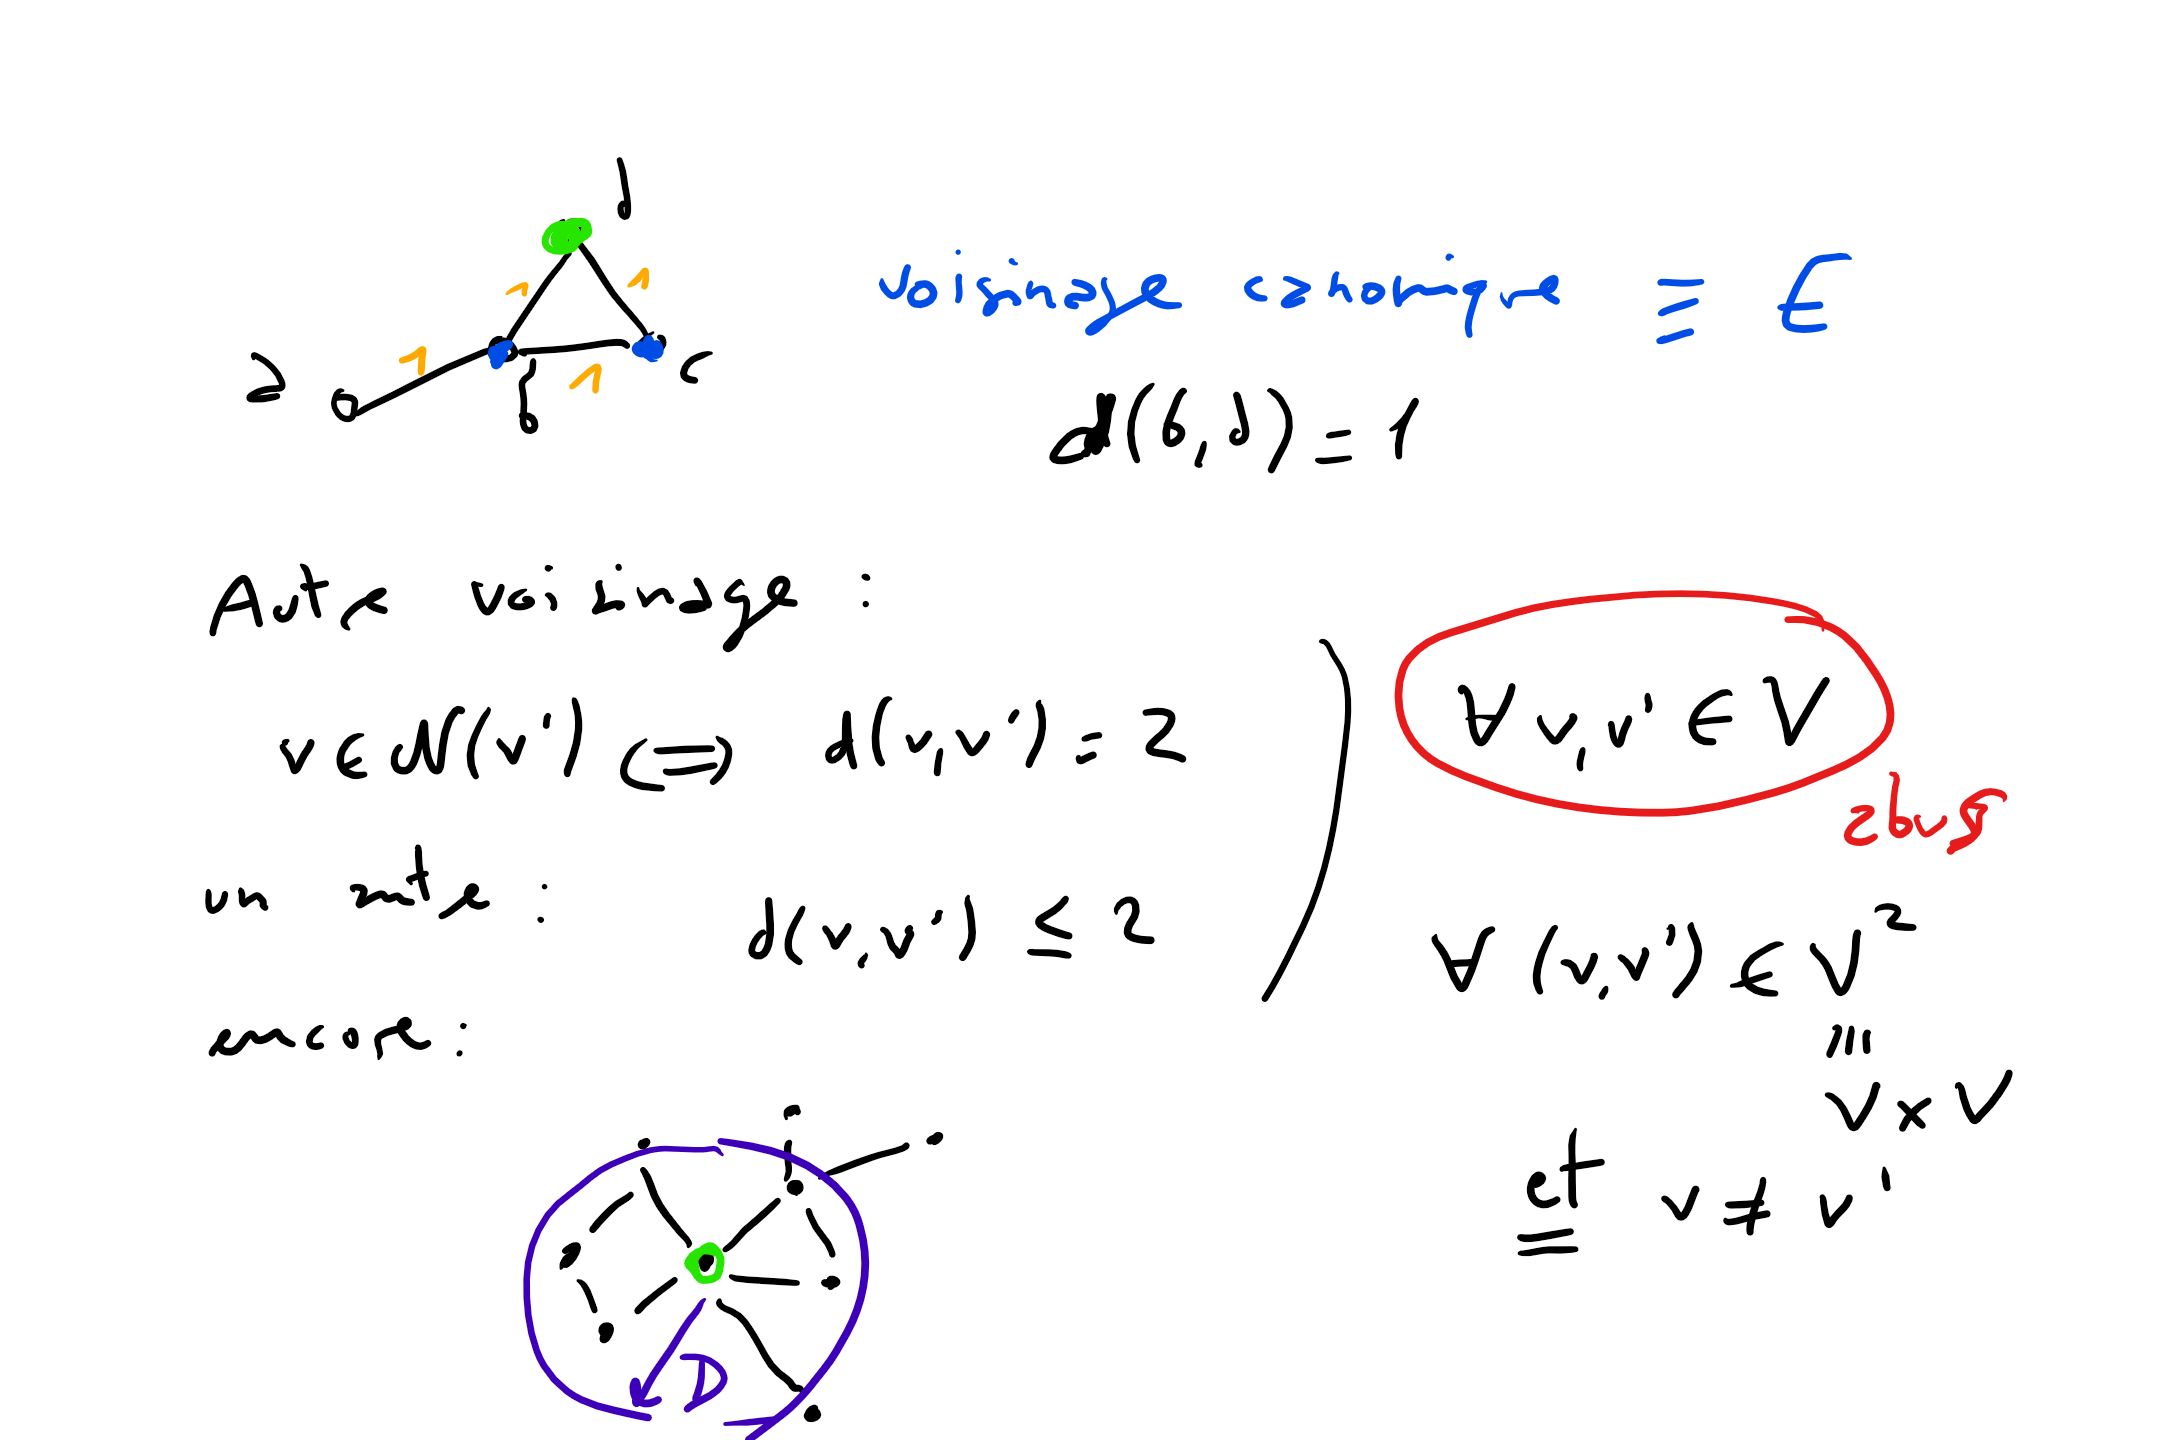 d
1 1
a 1 b 1 c
voisinage canonique ≡ E
d(b,d) = 1
Autre voisinage :
v ∈ N(v') ⟺ d(v,v') = 2
un autre : d(v,v') ≤ 2
encore :
D
∀ v,v' ∈ V
abus
∀ (v,v') ∈ V²
≡
V × V
et v ≠ v'